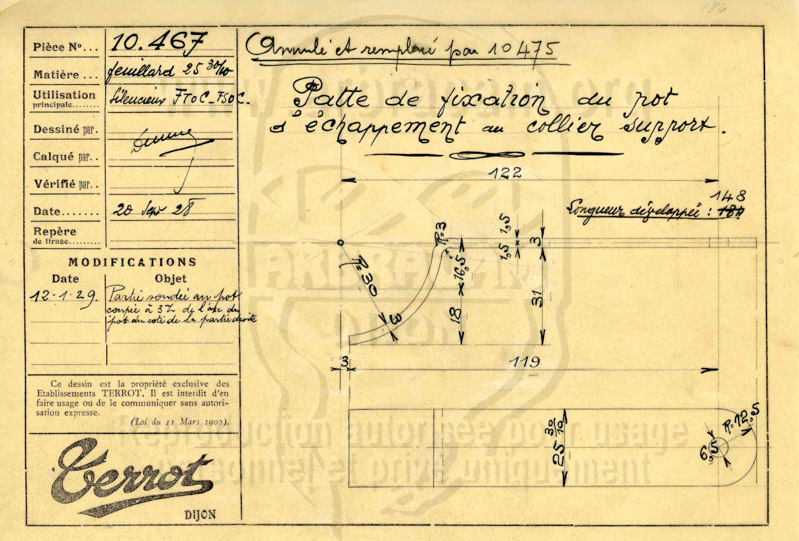 184
Pièce No... 10.467
Matière... feuillard 25 30/10
Utilisation principale... Silencieux FTOC_FSOC_
Dessiné par.
Calqué par..
Vérifié par..
Date....... 20 Sept 28
Repère de tirage
MODIFICATIONS
Date Objet
12-1-29. Partie soudée au pot
coupée à 3% de l'axe du
pot du coté de la partie droite
Ce dessin est la propriété exclusive des
Etablissements TERROT. Il est interdit d'en
faire usage ou de le communiquer sans autori-
sation expresse.
(Loi du 11 Mars 1902).
Terrot
DIJON
Annulé et remplacé par 10475
Patte de fixation du pot
d'échappement au collier support.
122
Longueur développée : 148
184
R=30
R=3
1,5 1,5
3
16,5
18
31
3
3
119
25 30/10
R=12,5
6,5
www. .org
DIJON
Reproduction autorisée pour usage
personnel et privé uniquement